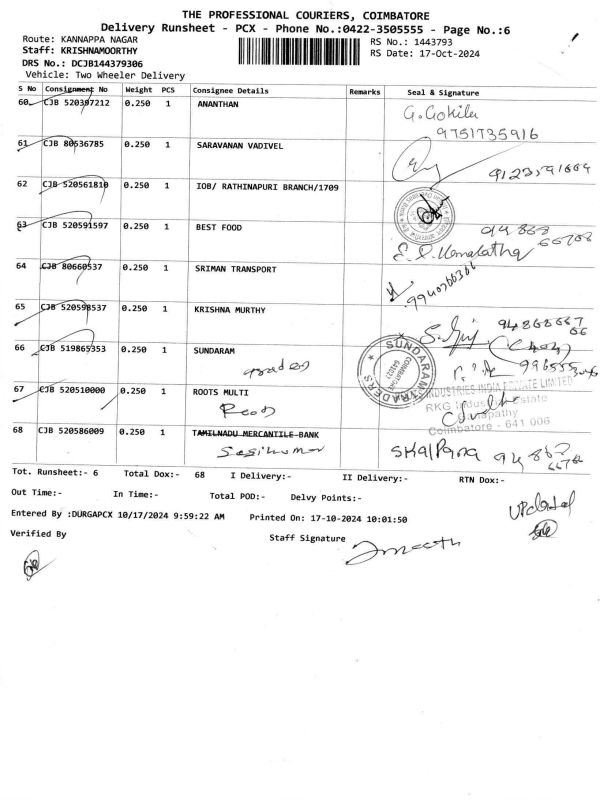 THE PROFESSIONAL COURIERS, COIMBATORE
Delivery Runsheet - PCX - Phone No.:0422-3505555 - Page No.:6
Route: KANNAPPA NAGAR
RS No.: 1443793
Staff: KRISHNAMOORTHY
RS Date: 17-Oct-2024
DRS No.: DCJB144379306
Vehicle: Two Wheeler Delivery
S No Consignment No Weight PCS Consignee Details Remarks Seal & Signature
60 CJB 520397212 0.250 1 ANANTHAN
G. Gokila
9751735916
61 CJB 80536785 0.250 1 SARAVANAN VADIVEL
62 CJB 520561810 0.250 1 IOB/ RATHINAPURI BRANCH/1709
63 CJB 520591597 0.250 1 BEST FOOD
64 CJB 80660537 0.250 1 SRIMAN TRANSPORT
9940766366
65 CJB 520598537 0.250 1 KRISHNA MURTHY
66 CJB 519865353 0.250 1 SUNDARAM
SUNDARAM TRADERS
COIMBATORE
67 CJB 520510000 0.250 1 ROOTS MULTI
INDUSTRIES INDIA PRIVATE LIMITED
RKG Industrial Estate
Coimbatore - 641 006
68 CJB 520586009 0.250 1 TAMILNADU MERCANTILE BANK
Sasikumar
Tot. Runsheet:- 6 Total Dox:- 68 I Delivery:- II Delivery:- RTN Dox:-
Out Time:- In Time:- Total POD:- Delvy Points:-
Updated
Entered By :DURGAPCX 10/17/2024 9:59:22 AM Printed On: 17-10-2024 10:01:50
Verified By Staff Signature